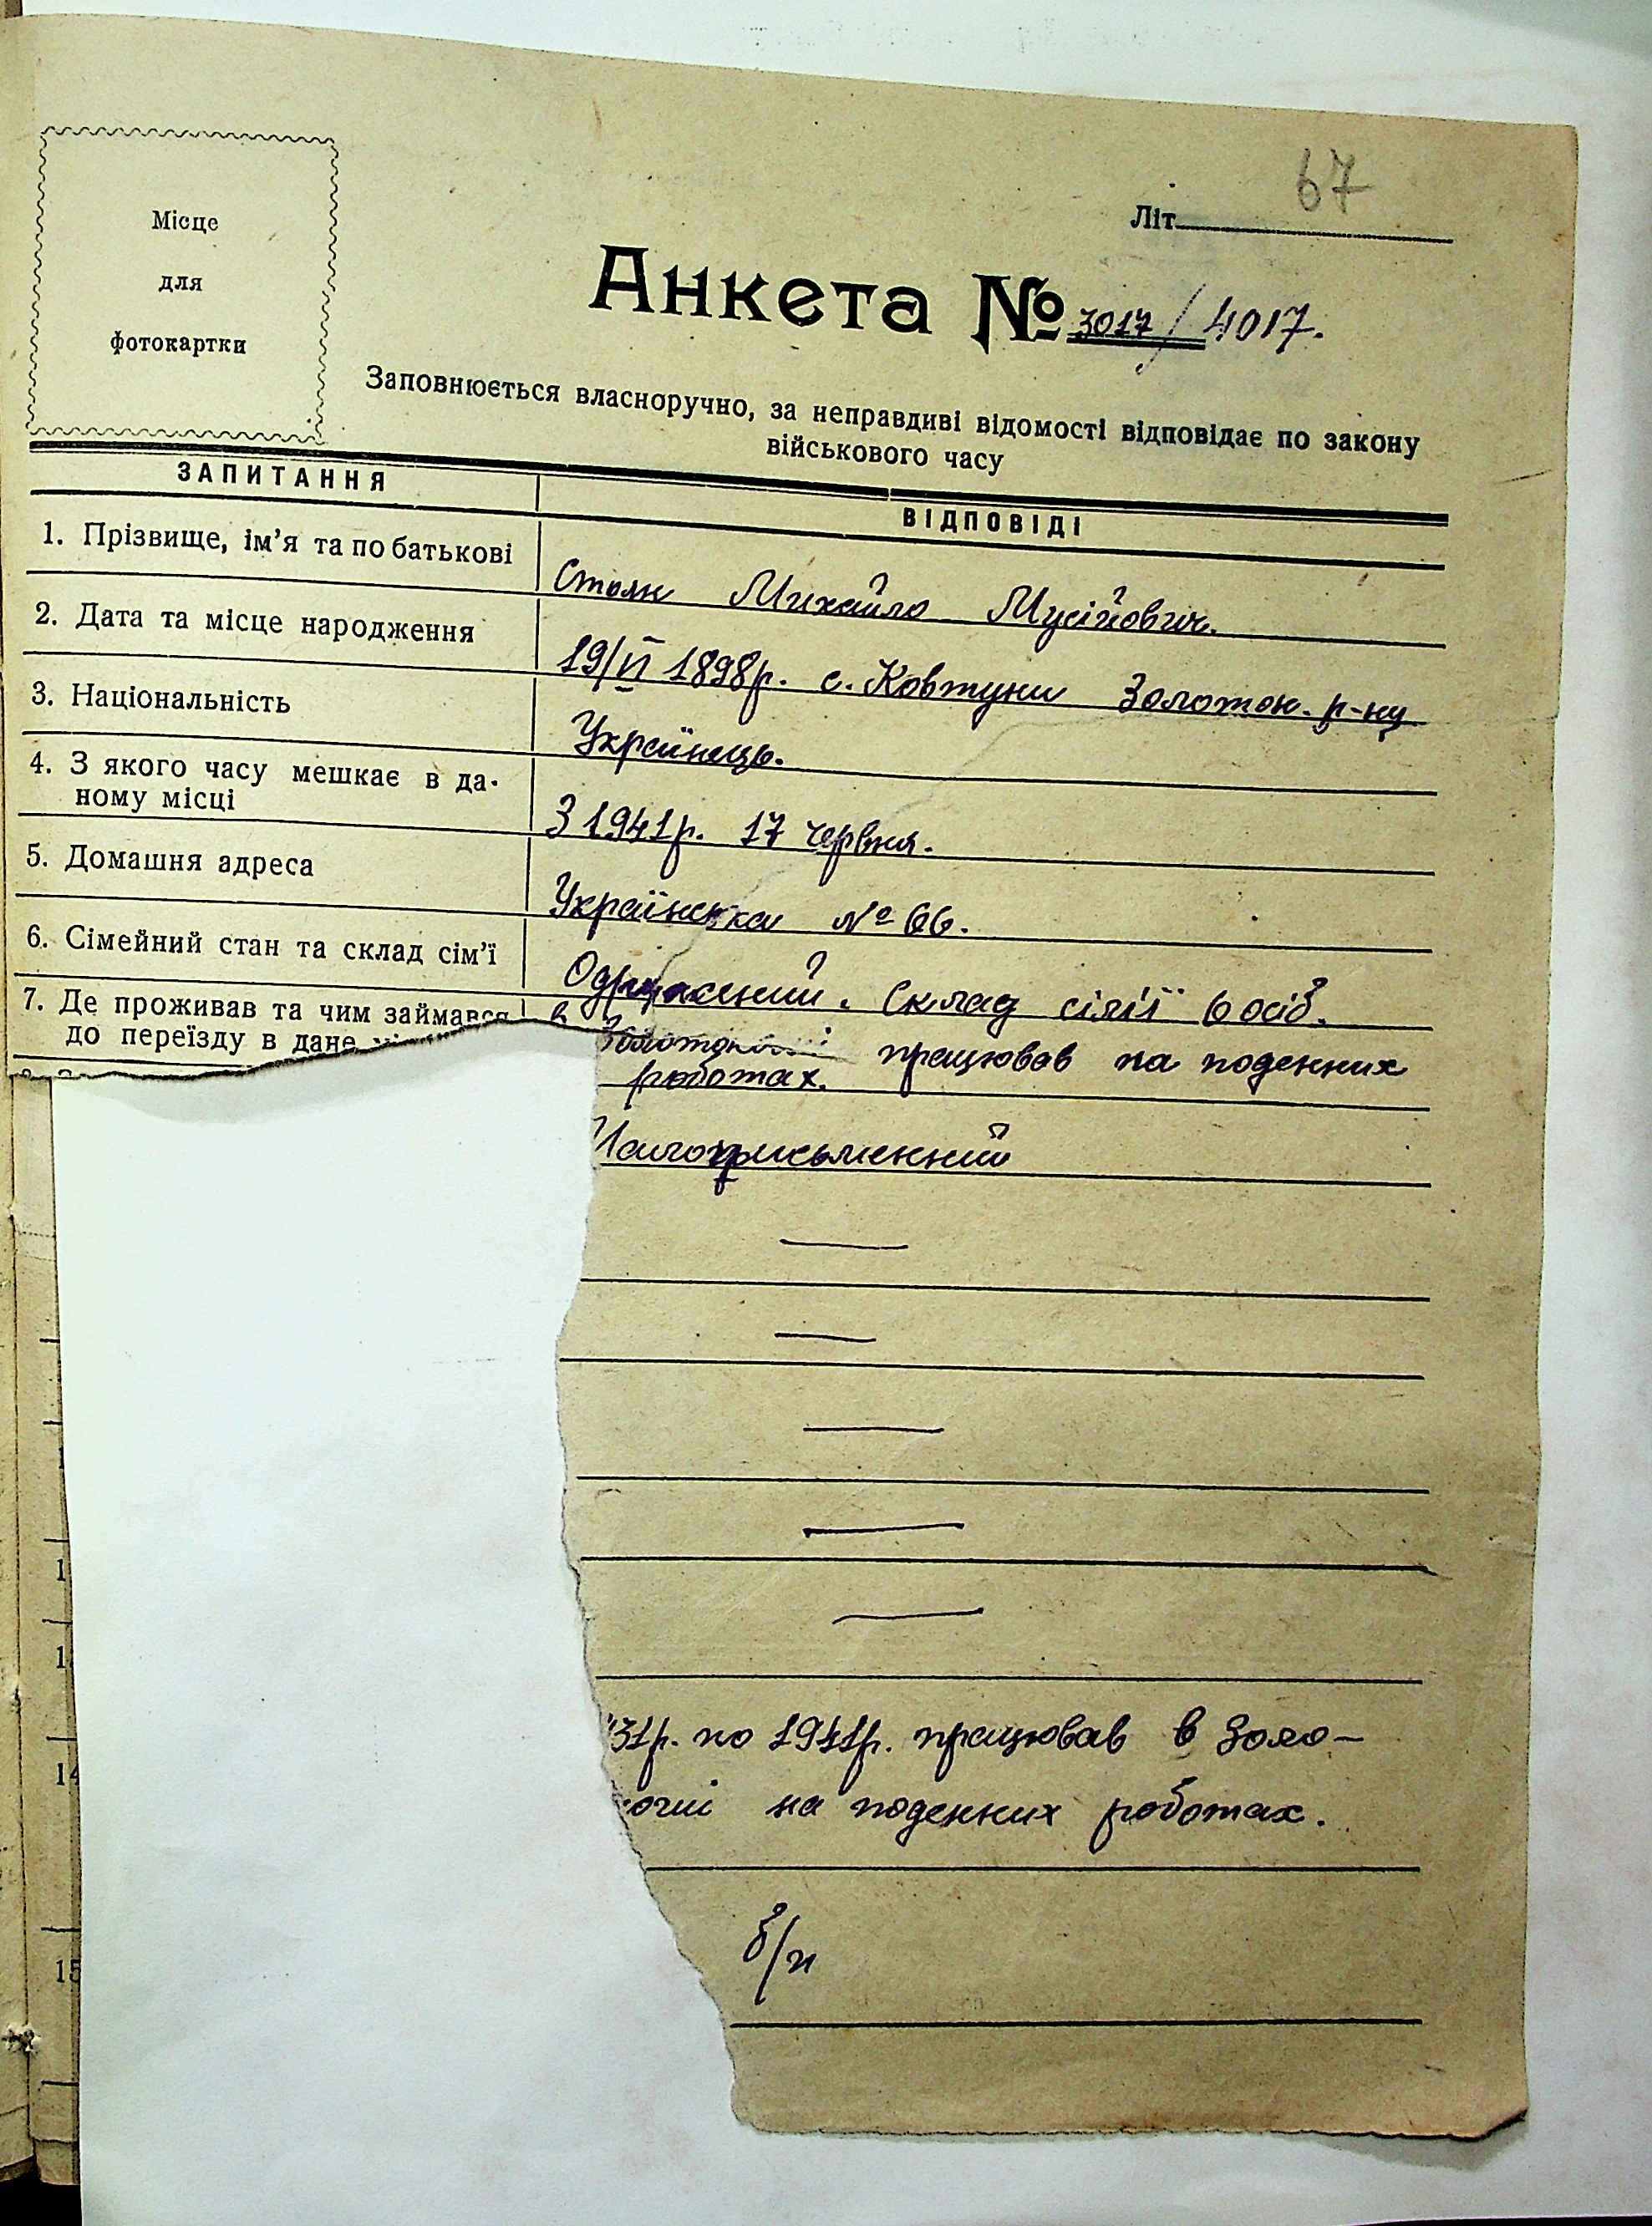 67
Літ
Місце
для
фотокартки
Анкета № 3017/4017.
Заповнюється власноручно, за неправдиві відомості відповідає по закону
військового часу
ЗАПИТАННЯ
ВІДПОВІДІ
1. Прізвище, ім'я та по батькові
Михайло Мусійович.
2. Дата та місце народження
19/VI 1898р. с. Ковтуни Золотон. р-ну
3. Національність
Українець.
4. З якого часу мешкає в да-
ному місці
З 1941р. 17 червня.
5. Домашня адреса
Українська № 66.
6. Сімейний стан та склад сім'ї
Одружений. Склад сім'ї 6 осіб.
7. Де проживав та чим займався
до переїзду в дане
в працював на поденних
роботах.
Малописьменний
31р. по 1941р. працював в Золо-
на поденних роботах.
б/п
14
15